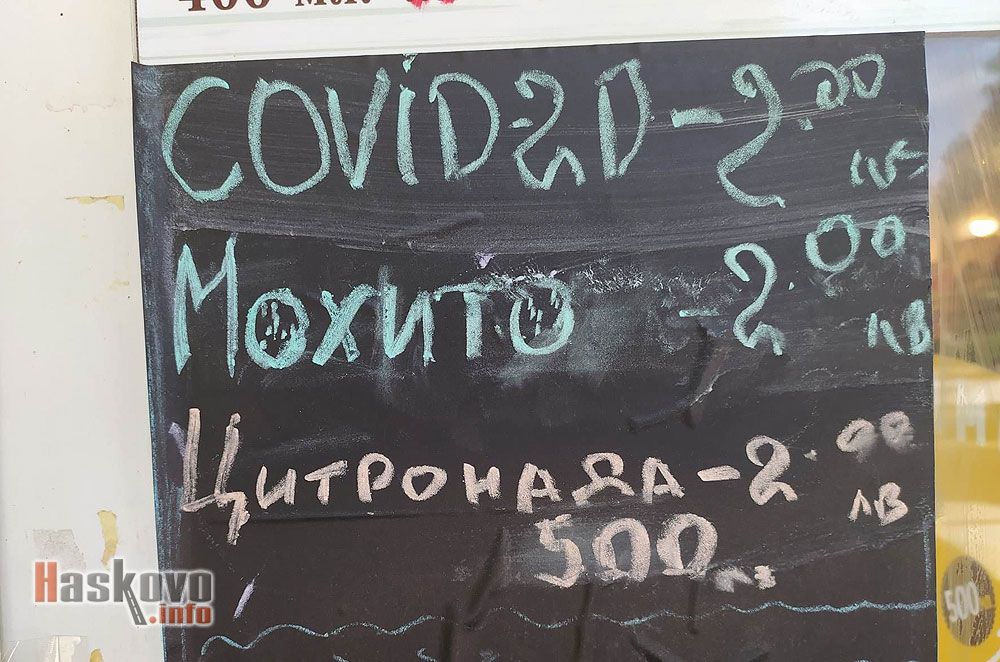 400 мл.
COVID-2D-2.00
лв
Мохито - 2.00
лв
Цитронада-2.00
лв
500
Haskovo
.info
500